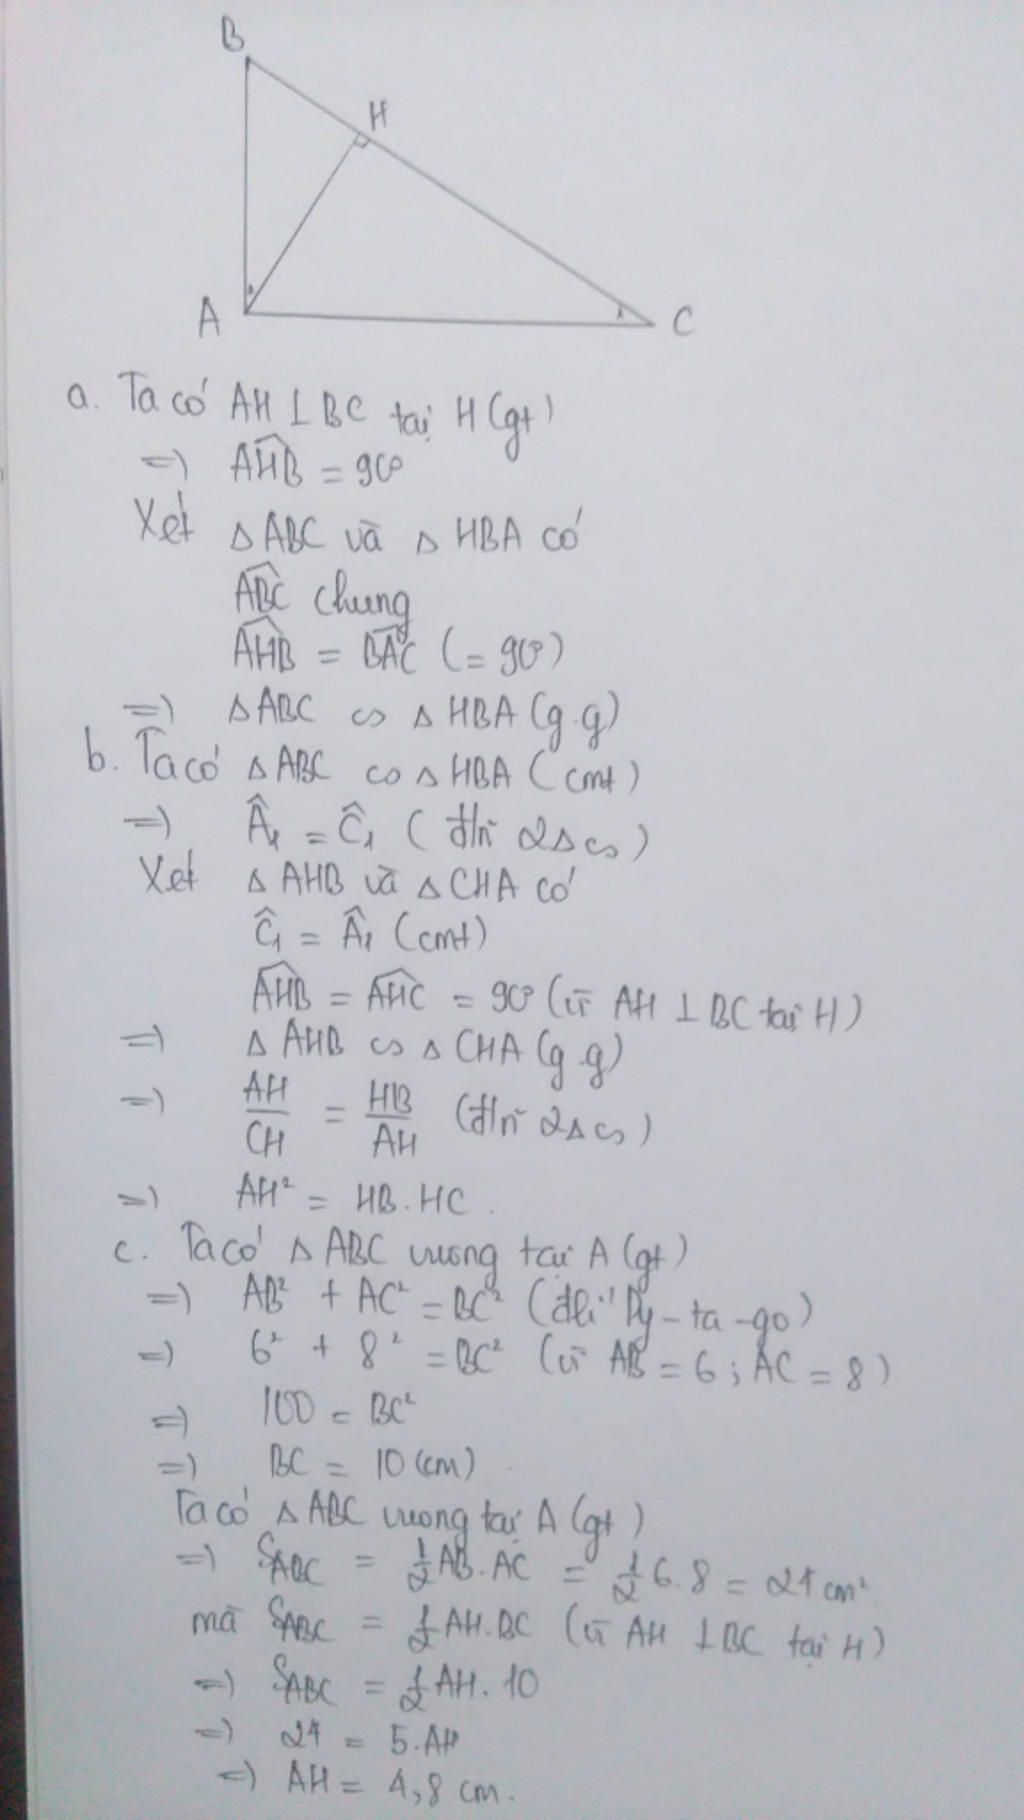 B
H
A
C
a. Ta có AH ⊥ BC tại H (gt)
=) $\widehat{AHB}$ = 90°
Xét △ ABC và △ HBA có
$\widehat{ABC}$ chung
$\widehat{AHB}$ = $\widehat{BAC}$ (= 90°)
=) △ ABC ∽ △ HBA (g.g)
b. Ta có △ ABC ∽ △ HBA (cmt)
=) Â₁ = Ĉ₁ (đ/n 2△ ∽)
Xét △ AHB và △ CHA có
Ĉ₁ = Â₁ (cmt)
$\widehat{AHB}$ = $\widehat{AHC}$ = 90° (vì AH ⊥ BC tại H)
=) △ AHB ∽ △ CHA (g.g)
=) $\frac{AH}{CH}$ = $\frac{HB}{AH}$ (đ/n 2△ ∽)
=) AH² = HB.HC.
c. Ta có △ ABC vuông tại A (gt)
=) AB² + AC² = BC² (đlí Py-ta-go)
=) 6² + 8² = BC² (vì AB = 6; AC = 8)
=) 100 = BC²
=) BC = 10 (cm)
Ta có △ ABC vuông tại A (gt)
=) S_ABC = $\frac{1}{2}$ AB.AC = $\frac{1}{2}$ 6.8 = 24 cm²
mà S_ABC = $\frac{1}{2}$ AH.BC (vì AH ⊥ BC tại H)
=) S_ABC = $\frac{1}{2}$ AH.10
=) 24 = 5.AH
=) AH = 4,8 cm.